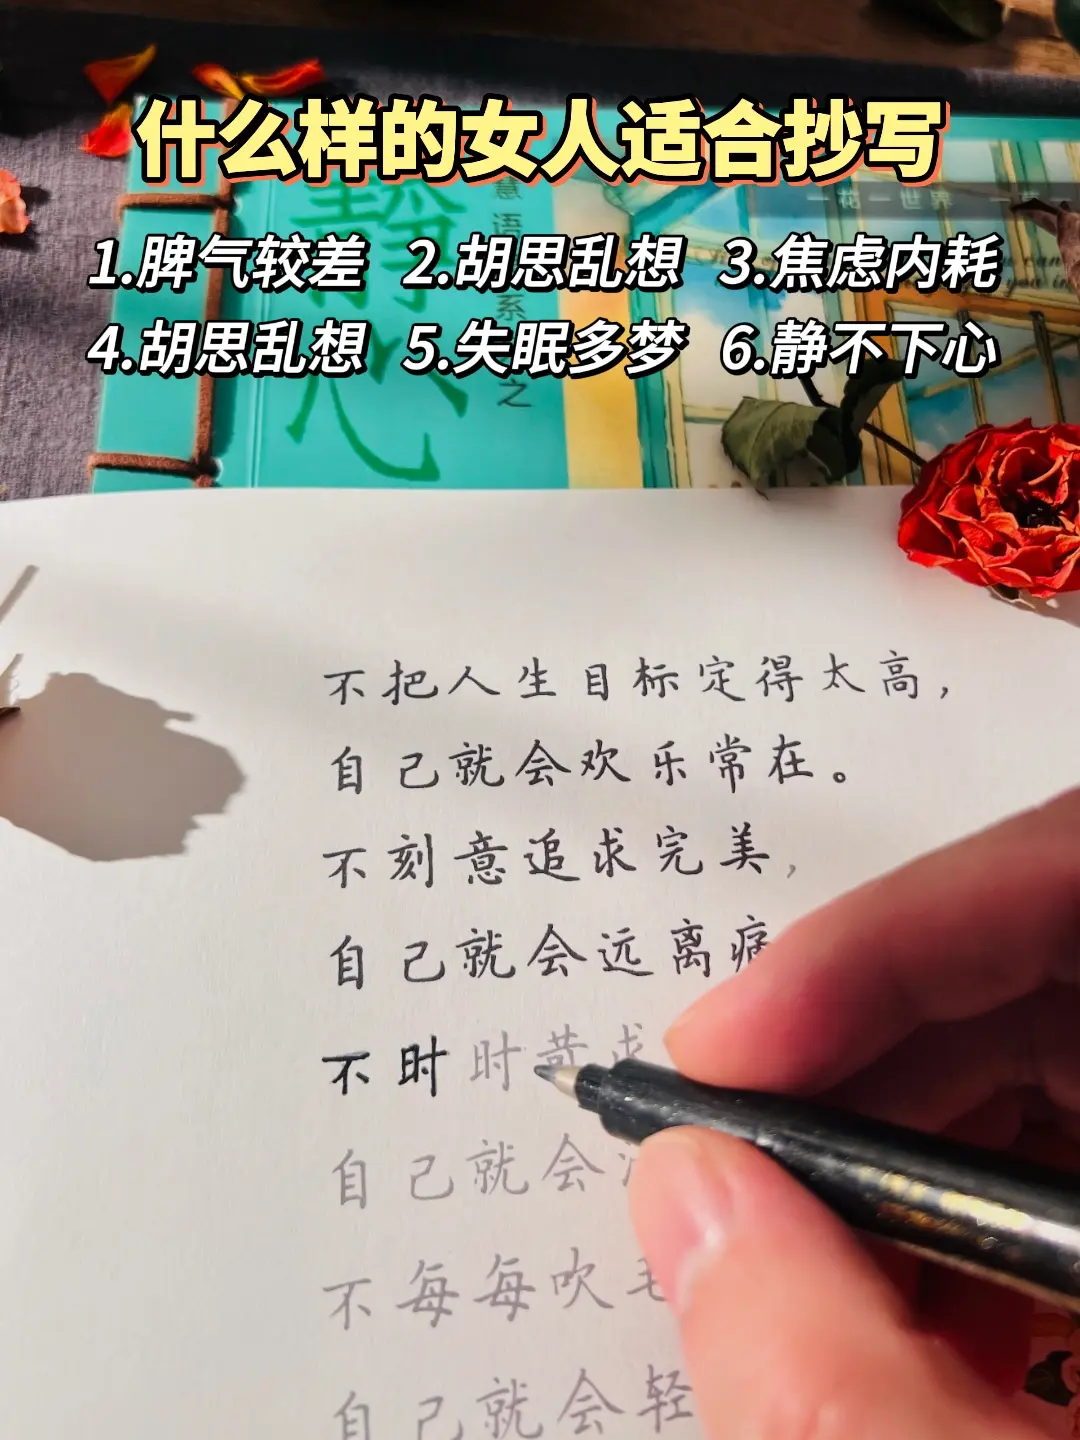 什么样的女人适合抄写
1.脾气较差 2.胡思乱想 3.焦虑内耗
4.胡思乱想 5.失眠多梦 6.静不下心
靜心
慧语
系
之
一花一世界 一
can
you in
不把人生目标定得太高，
自己就会欢乐常在。
不刻意追求完美，
自己就会远离痛
不时时苛求
自己就会
不每每吹毛
自己就会轻